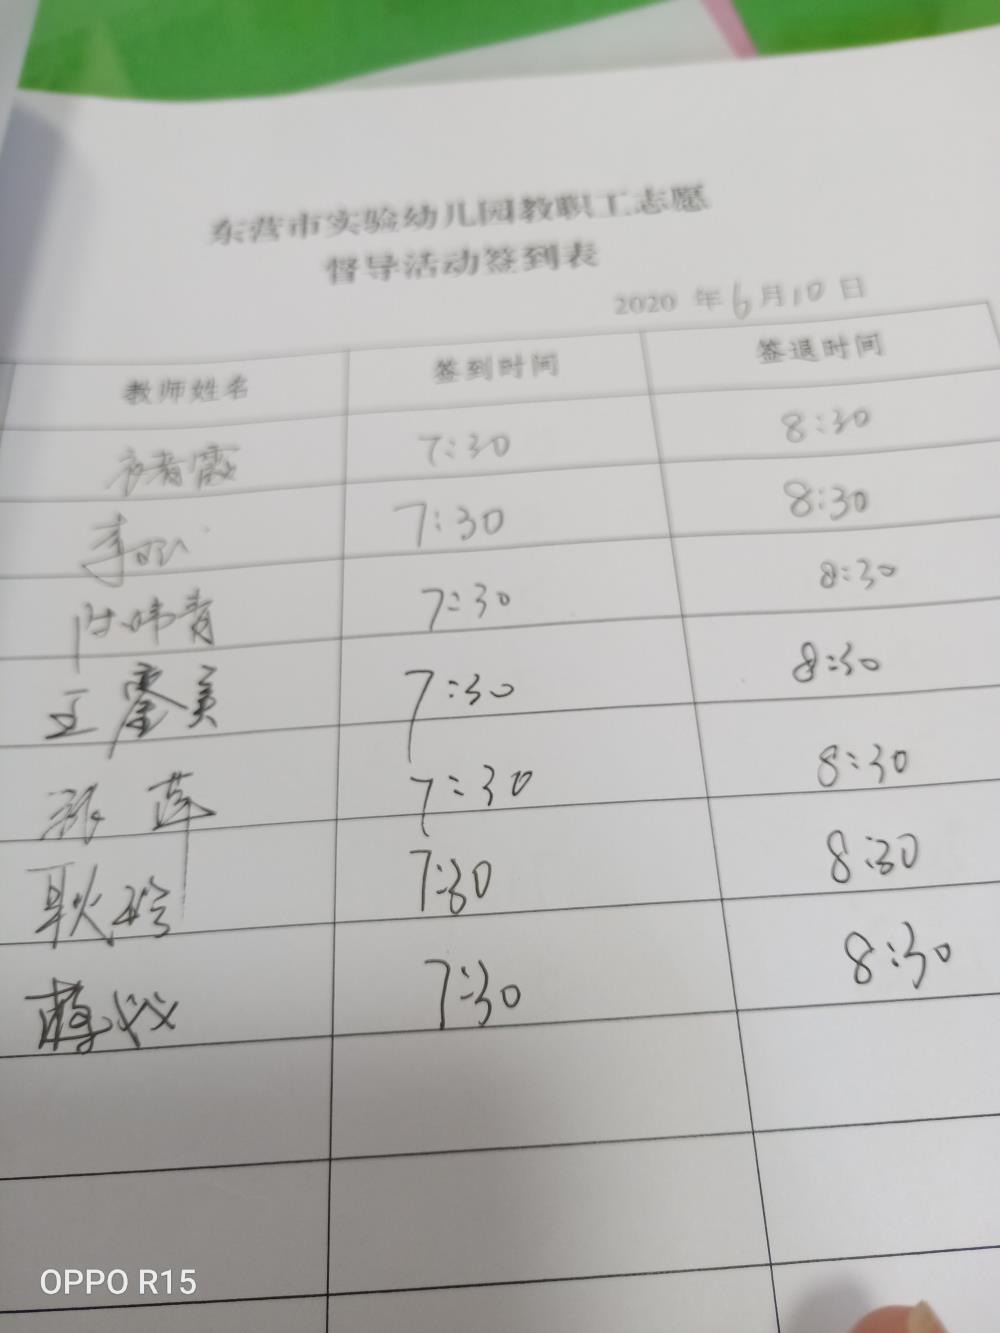 东营市实验幼儿园教职工志愿
督导活动签到表
2020 年 6 月 10 日
教师姓名 签到时间 签退时间
7:30 8:30
李 7:30 8:30
青 7:30 8:30
王 美 7:30 8:30
张 萍 7:30 8:30
耿 玲 7:30 8:30
7:30 8:30
OPPO R15